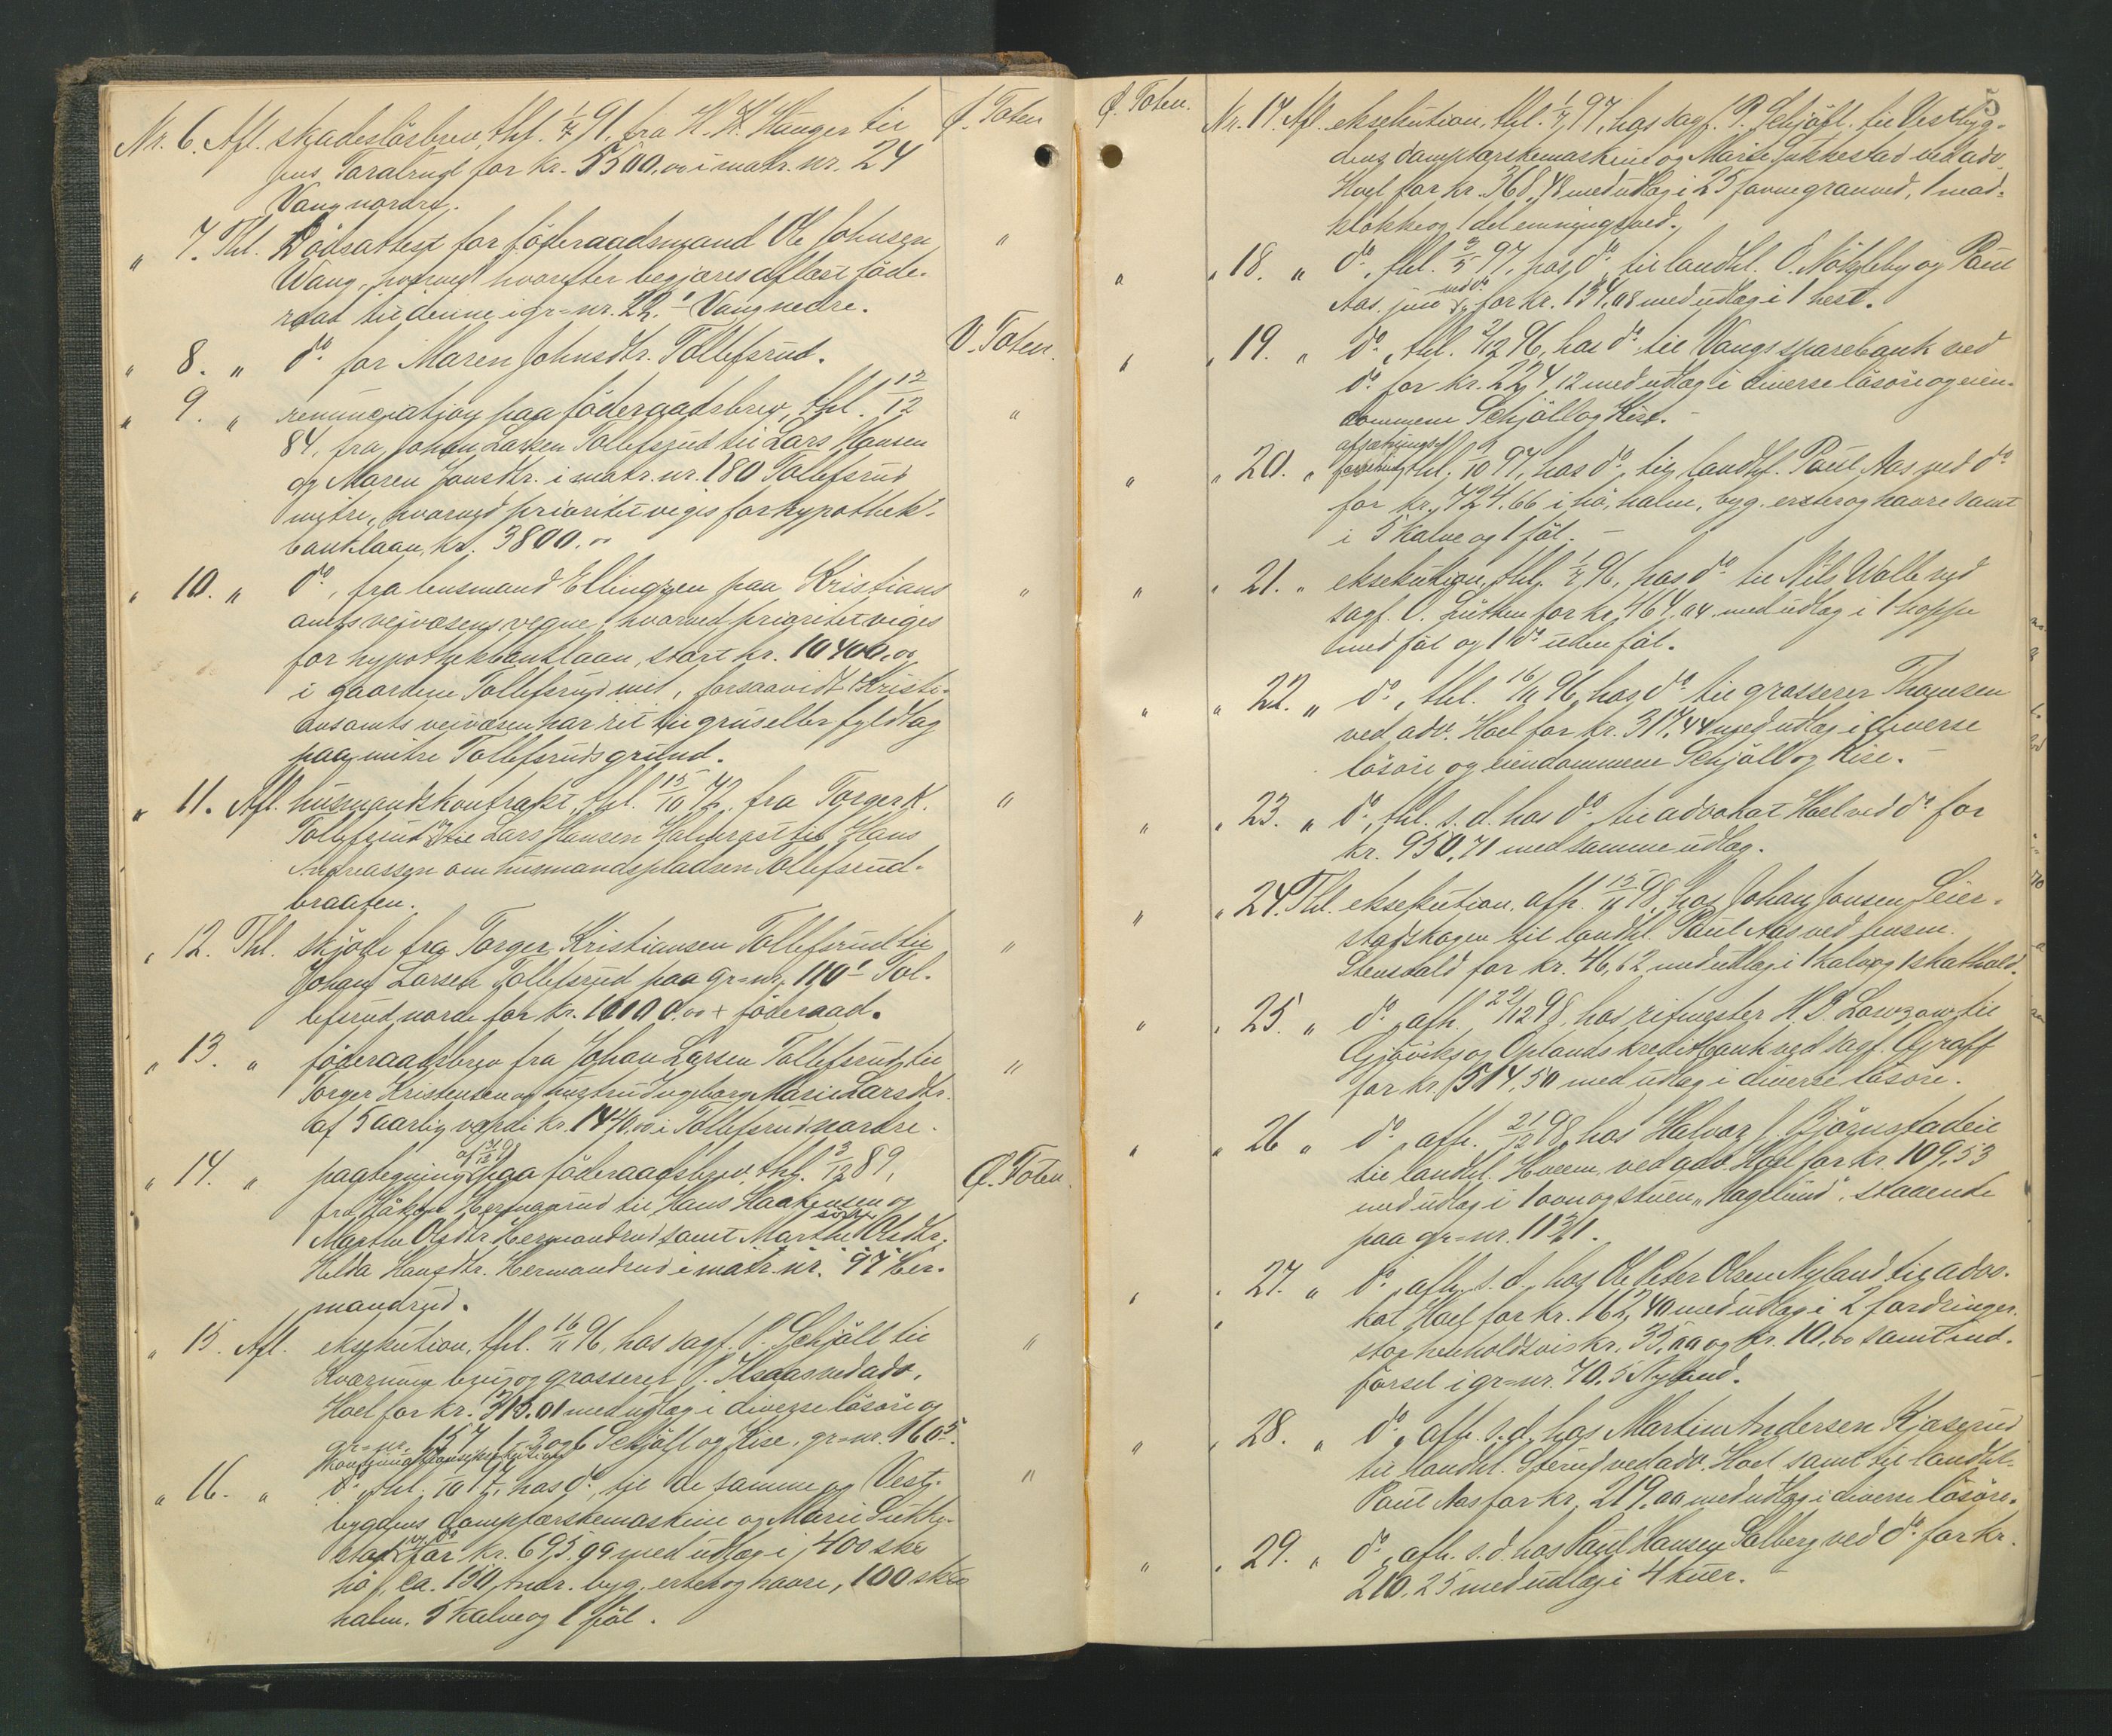 Nr. 6. Afl. skadesløsbrev, thl. 1/7 91, fra H. H. Hanger til Ø. Toten
Jens Taralrud for kr. 5500.00 i matr. nr. 24
Vang nordre.
" 7. Thl. Dødsattest for føderaadsmand Ole Johnsen "
Wang, hvorved hvorefter begjæres aflæst føde-
raad til denne i gr=nr. 22.1 Vang nedre.
" 8. " do for Maren Johnsdtr. Tollefsrud. V. Toten.
" 9. " renunciation paa føderaadsbrev, thl. 12/12 "
84, fra Johan Larsen Tollefsrud til Lars Hansen
og Maren Jonsdtr. i matr. nr. 180 Tollefsrud
mitre, hvorved prioritet viges for hypothek-
banklaan, kr. 3800.00
" 10. " do, fra lensmand Ellingsen paa Kristians "
amts veivæsens vegne, hvorved prioritet viges
for hypothekbanklaan, stort kr. 10400.00
i gaardene Tollefsrud mit, forsaavidt Kristi-
ansamts veivæsen har ret til grus eller fyldtag
paa mitre Tollefsruds grund.
" 11. Afl. husmandskontrakt, thl. 15/10 72, fra Torger K. "
Tollefsrud til Lars Hansen til Hans
Andreassen om husmandspladsen Tollefsrud-
braaten.
" 12. Thl. skjøde fra Torger Kristiansen Tollefsrud til "
Johan Larsen Tollefsrud paa gr=nr. 110.1 Tol-
lefsrud nordre for kr. 16100.00 + føderaad.
" 13. " føderaadsbrev fra Johan Larsen Tollefsrud til "
Torger Kristensen og hustru Ingeborg Marie Larsdtr.
af 5 aarlig værdi kr. 1440.00 i Tollefsrud nordre.
" 14. " paategning paa føderaadsbrev, thl. 3/12 89, Ø. Toten.
fra Håkon Hermanrud til Hans Haakensen og
Marthe Olsdtr. Hermandrud samt Marthe Olsdtr.
Hilda Hansdtr. Hermandrud i matr. nr. 97 Her-
mandrud.
" 15. Afl. eksekution, thl. 16/11 96, hos sagf. P. Schjøll til "
Kværnum brug og grosserer P. Ilsaas ved adv.
Hoel for kr. 315.01 med udlæg i diverse løsøre og
gr=nr. 157, 1-3 og 6 Schjøll og Kise, gr=nr. 160.5.
" 16. " do thl. 97, hos do, til de samme og Vest- "
bygdens damptærskemaskine og Marie Sukke-
stad ved do for kr. 695.99 med udlæg i 400 skr.
hø, ca. 130 tndr. byg, erter og havre, 100 skr.
halm, 5 kalve og 1 føl.
5
Ø. Toten. Nr. 17. Afl. eksekution, thl. 1/7 97, hos sagf. P. Schjøll til Vestbyg-
dens damptærskemaskine og Marie Sukkestad ved adv.
Hoel for kr. 368.48 med udlæg i 25 favne granved, 1 mad-
klokke og 1 del emningsved.
" " 18. " do, thl. 3/5 97, hos do til landhl. O. Nøkleby og Paul
Aas, for kr. 134.08 med udlæg i 1 hest.
" " 19. " do, thl. 2/12 96, hos do til Vangs sparebank ved
do for kr. 224.12 med udlæg i diverse løsøre og eien-
dommene Schjøll og Kise.
" " 20. " thl. 97, hos do, til landhl. Paul Aas ved do
for kr. 724.66 i hø, halm, byg, erter og havre samt
i 5 kalve og 1 føl.
" " 21. " eksekution, thl. 1/7 96, hos do til Nils Wolle ved
sagf. O. Lütken for kr. 464.04 med udlæg i 1 hoppe
med føl og 1 do uden føl.
" " 22. " do, thl. 16/11 96, hos do til grosserer Thomsen
ved adv. Hoel for kr. 317.44 med udlæg i diverse
løsøre og eiendommene Schjøll og Kise.
" " 23. " do, thl. s. d. hos do til advokat Hoel ved do for
kr. 950.71 med samme udlæg.
" " 24. Thl. eksekution, afh. 15/11 98, hos Johan Jonsen Seier-
stadskogen til landhl. Paul Aas ved fuldm.
Stensvald for kr. 46.62 med udlæg i 1 kalv og 1 skathold.
" " 25. " do, afh. 22/12 98, hos ritmester H. D. Lowzow til
Gjøviks og Oplands kreditbank ved sagf. Graff
for kr. 514.50 med udlæg i diverse løsøre.
" " 26 " do, afh. 21/12 98, hos Halvor J. Bjørnstadeie
til landhl. Hveem, ved adv. Hoel for kr. 109.53
med udlæg i 1 ovn og stuen "Haglund", staaende
paa gr=nr. 113.1.
" " 27. " do, afh. s. d., hos Ole Peter Olsen Nyland til advo-
kat Hoel for kr. 162.40 med udlæg i 2 fordringer,
stor henholdsvis kr. 35.00 og kr. 10.00 samt ind-
førsel i gr=nr. 70.5 Nyland.
" " 28. " do, afh. s. d., hos Martin Andersen Kjæserud
til landhl. Sterud ved adv. Hoel samt til landhl.
Paul Aas for kr. 219.00 med udlæg i diverse løsøre.
" " 29. " do, afh. s. d. hos Paul Hansen Solberg ved do for kr.
210.25 med udlæg i 4 kuer.